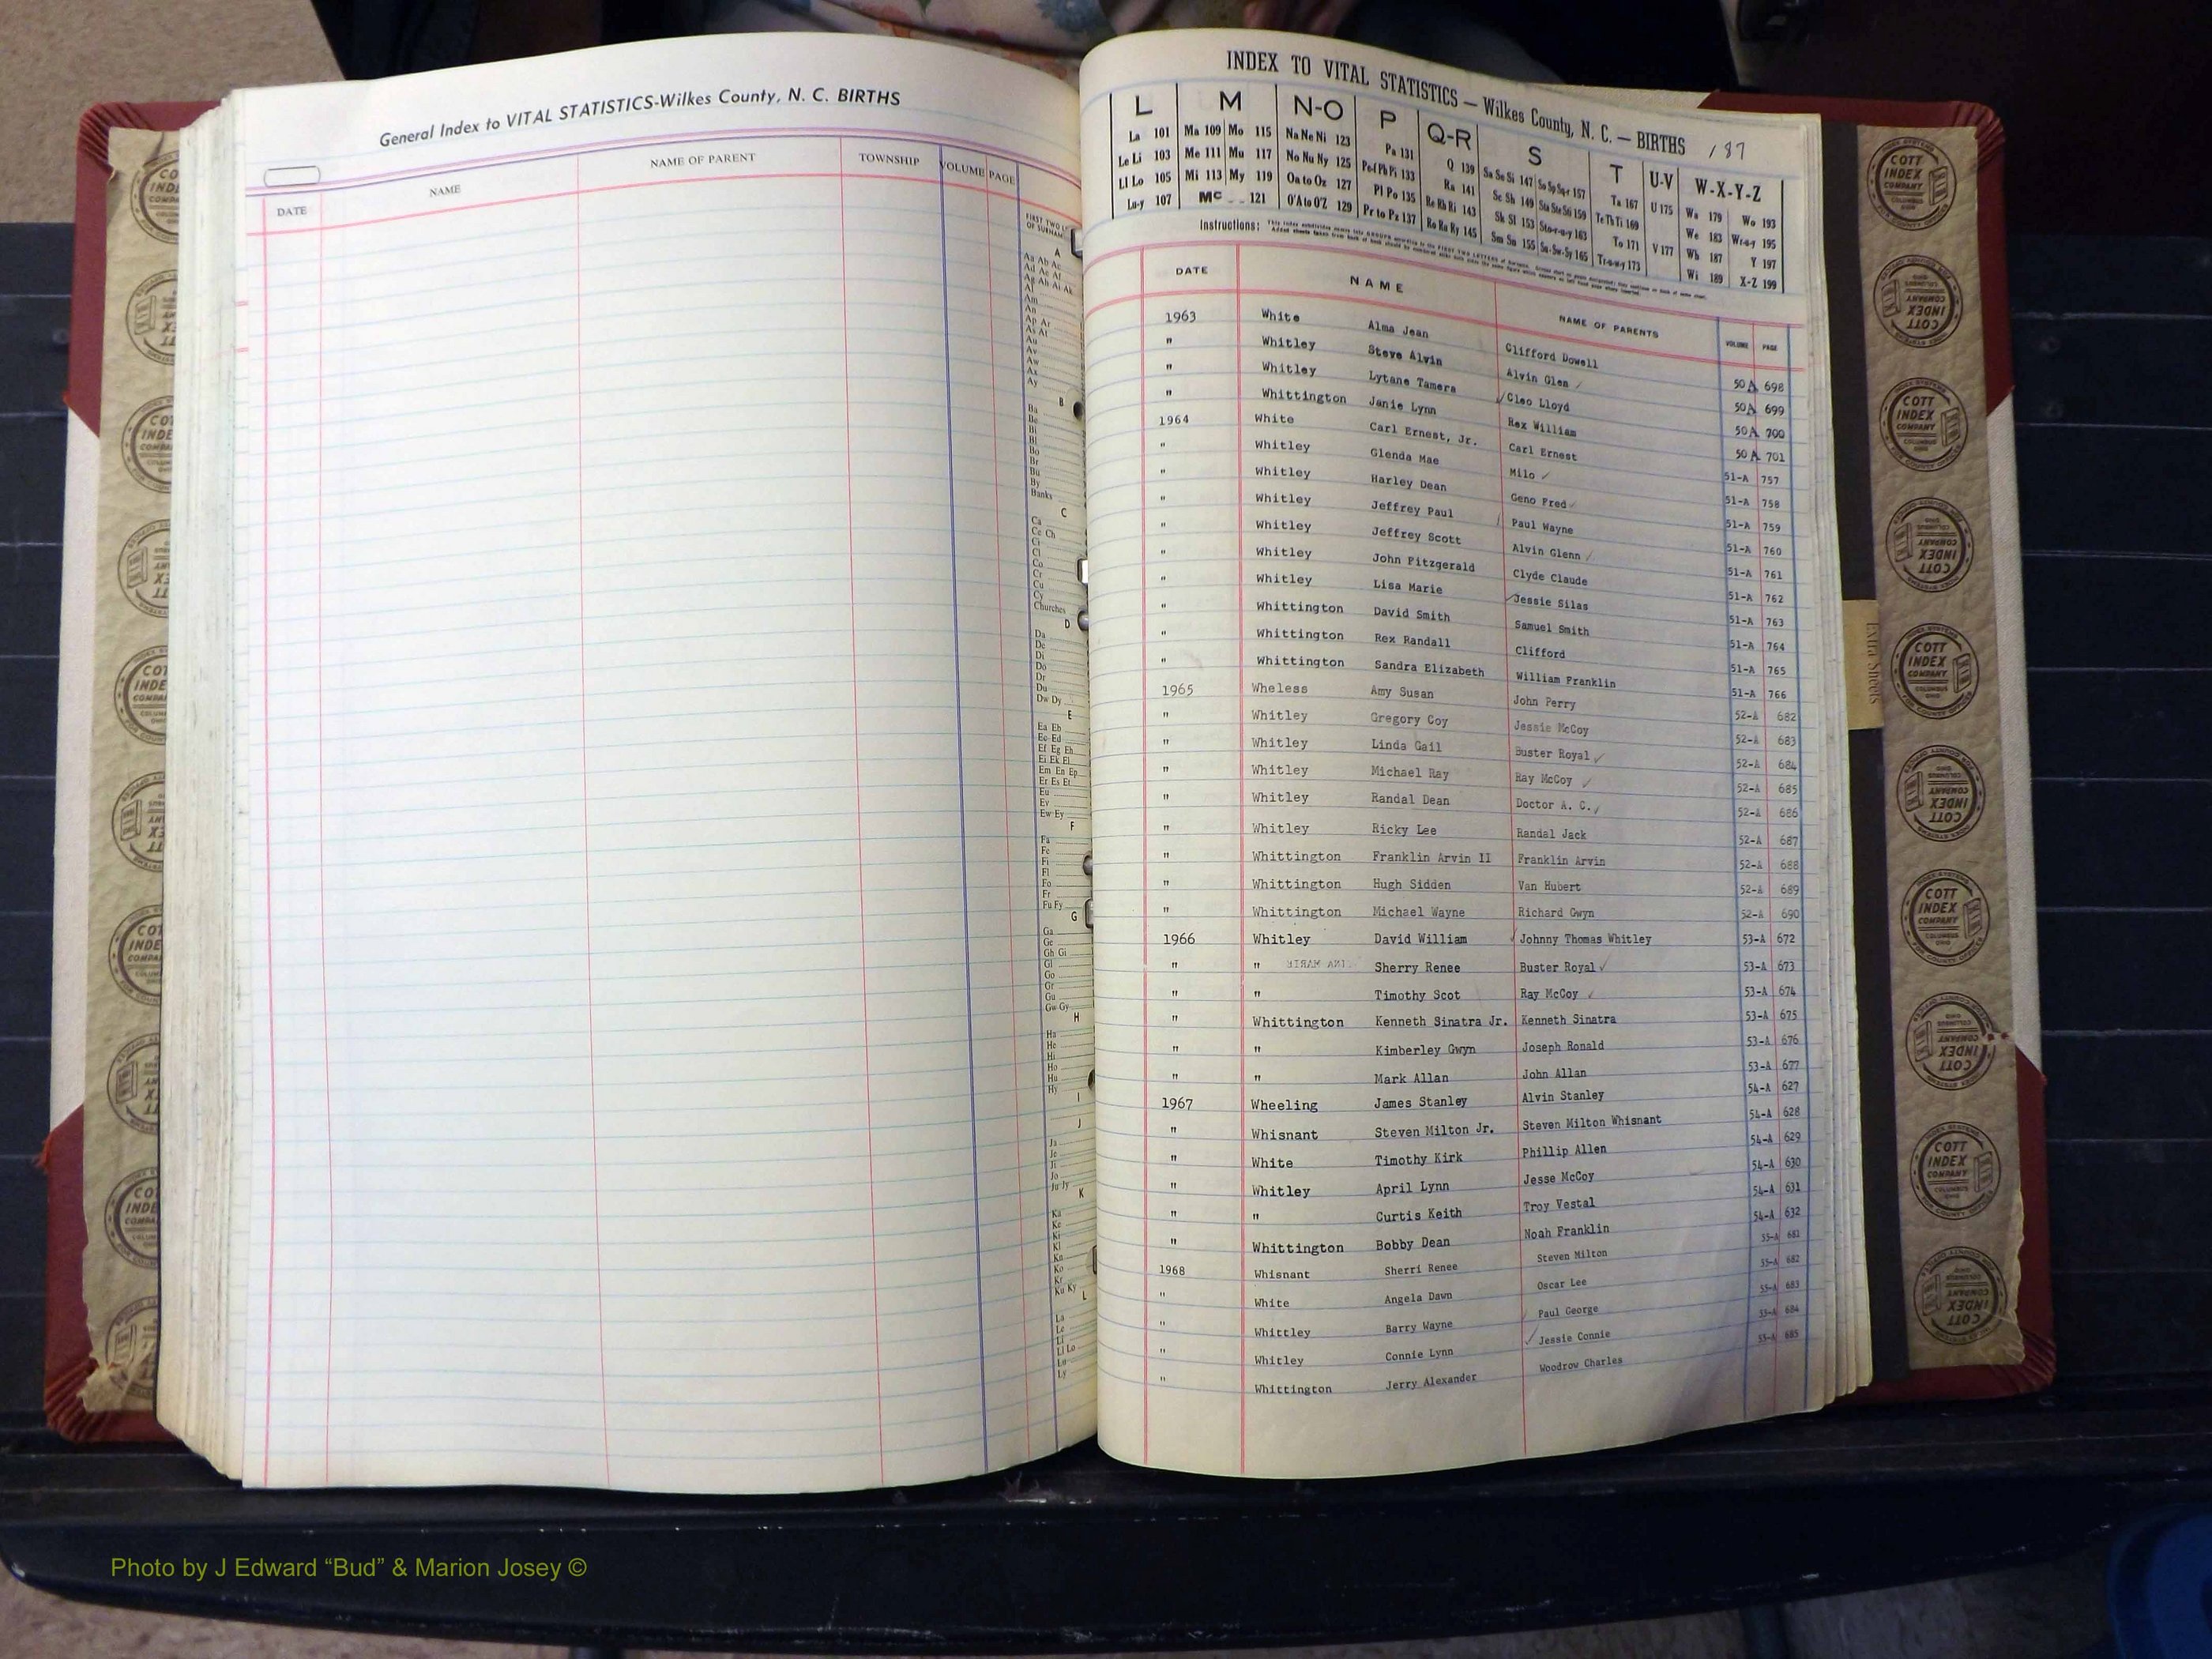 General Index to VITAL STATISTICS-Wilkes County, N. C. BIRTHS
DATE NAME NAME OF PARENT TOWNSHIP VOLUME PAGE
A
Aa Ab Ac
Ad Ae Af
Ag Ah Ai Ak
Al
Am
An
Ap Ar
As At
Au
Av
Aw
Ax
Ay
B
Ba
Be
Bi
Bl
Bo
Br
Bu
By
Banks
C
Ca
Ce Ch
Ci
Cl
Co
Cr
Cu
Cy
Churches
D
Da
De
Di
Do
Dr
Du
Dw Dy
E
Ea Eb
Ec Ed
Ef Eg Eh
Ei Ek El
Em En Ep
Er Es Et
Eu
Ev
Ew Ey
F
Fa
Fe
Fi
Fl
Fo
Fr
Fu Fy
G
Ga
Ge
Gh Gi
Gl
Go
Gr
Gu
Gw Gy
H
Ha
He
Hi
Ho
Hu
Hy
I
J
Ja
Je
Ji
Jo
Ju Jy
K
Ka
Ke
Ki
Kl
Kn
Ko
Kr
Ku Ky
L
La
Le
Li
Ll Lo
Lu
Ly
INDEX TO VITAL STATISTICS — Wilkes County, N. C. — BIRTHS 187
L M N-O P Q-R S T U-V W-X-Y-Z
La 101 Ma 109 Mo 115 Na Ne Ni 123 Pa 131 Q 139 Sa Se Si 147 So Sp Sq-r 157 Ta 167 U 175 Wa 179 Wo 193
Le Li 103 Me 111 Mu 117 No Nu Ny 125 Pe-f Ph Pi 133 Ra 141 Sc Sh 149 Sta Ste Sti 159 Te Th Ti 169 We 183 Wr-u-y 195
Ll Lo 105 Mi 113 My 119 Oa to Oz 127 Pl Po 135 Re Rh Ri 143 Sk Sl 153 Sto-r-u-y 163 To 171 V 177 Wh 187 Y 197
Lu-y 107 Mc 121 O'A to O'Z 129 Pr to Pz 137 Ro Ru Ry 145 Sm Sn 155 Su-Sw-Sy 165 Tr-u-w-y 173 Wi 189 X-Z 199
Instructions:
DATE NAME NAME OF PARENTS VOLUME PAGE
1963 White Alma Jean Clifford Dowell 50 A 698
" Whitley Steve Alvin Alvin Glen 50 A 699
" Whitley Lytane Tamera Cleo Lloyd 50 A 700
" Whittington Janie Lynn Rex William 50 A 701
1964 White Carl Ernest, Jr. Carl Ernest 51-A 757
" Whitley Glenda Mae Milo 51-A 758
" Whitley Harley Dean Geno Fred 51-A 759
" Whitley Jeffrey Paul Paul Wayne 51-A 760
" Whitley Jeffrey Scott Alvin Glenn 51-A 761
" Whitley John Fitzgerald Clyde Claude 51-A 762
" Whitley Lisa Marie Jessie Silas 51-A 763
" Whittington David Smith Samuel Smith 51-A 764
" Whittington Rex Randall Clifford 51-A 765
" Whittington Sandra Elizabeth William Franklin 51-A 766
1965 Wheless Amy Susan John Perry 52-A 682
" Whitley Gregory Coy Jessie McCoy 52-A 683
" Whitley Linda Gail Buster Royal 52-A 684
" Whitley Michael Ray Ray McCoy 52-A 685
" Whitley Randal Dean Doctor A. C. 52-A 686
" Whitley Ricky Lee Randal Jack 52-A 687
" Whittington Franklin Arvin II Franklin Arvin 52-A 688
" Whittington Hugh Sidden Van Hubert 52-A 689
" Whittington Michael Wayne Richard Gwyn 52-A 690
1966 Whitley David William Johnny Thomas Whitley 53-A 672
" " Sherry Renee Buster Royal 53-A 673
" " Timothy Scot Ray McCoy 53-A 674
" Whittington Kenneth Sinatra Jr. Kenneth Sinatra 53-A 675
" " Kimberley Gwyn Joseph Ronald 53-A 676
" " Mark Allan John Allan 53-A 677
1967 Wheeling James Stanley Alvin Stanley 54-A 627
" Whisnant Steven Milton Jr. Steven Milton Whisnant 54-A 628
" White Timothy Kirk Phillip Allen 54-A 629
" Whitley April Lynn Jesse McCoy 54-A 630
" " Curtis Keith Troy Vestal 54-A 631
" Whittington Bobby Dean Noah Franklin 54-A 632
1968 Whisnant Sherri Renee Steven Milton 55-A 681
" White Angela Dawn Oscar Lee 55-A 682
" Whittley Barry Wayne Paul George 55-A 683
" Whitley Connie Lynn Jessie Connie 55-A 684
" Whittington Jerry Alexander Woodrow Charles 55-A 685
Extra Sheets
COTT INDEX COMPANY COLUMBUS OHIO
Photo by J Edward “Bud” & Marion Josey ©